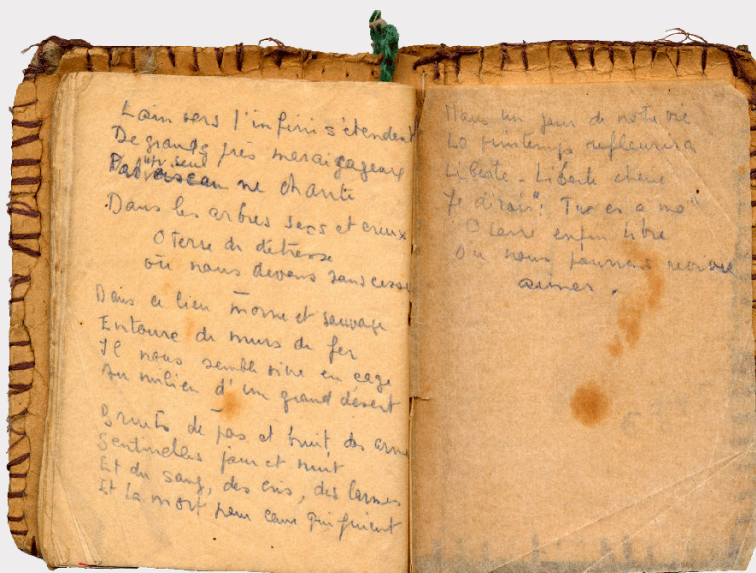 Loin vers l'infini s'étendent
De grands prés marécageux
Pas un seul
oiseau ne chante
Dans les arbres secs et creux
O terre de détresse
où nous devons sans cesse
Dans ce lieu morne et sauvage
Entouré de murs de fer
Il nous semble vivre en cage
Au milieu d'un grand désert
Bruits de pas et bruit des armes
Sentinelles jour et nuit
Et du sang, des cris, des larmes
Et la mort pour celui qui fuient
Mais un jour de notre vie
Le printemps refleurira
Liberté - Liberté chérie
Je dirai : "Tu es à moi"
O terre enfin libre
Où nous pourrons revivre
aimer.